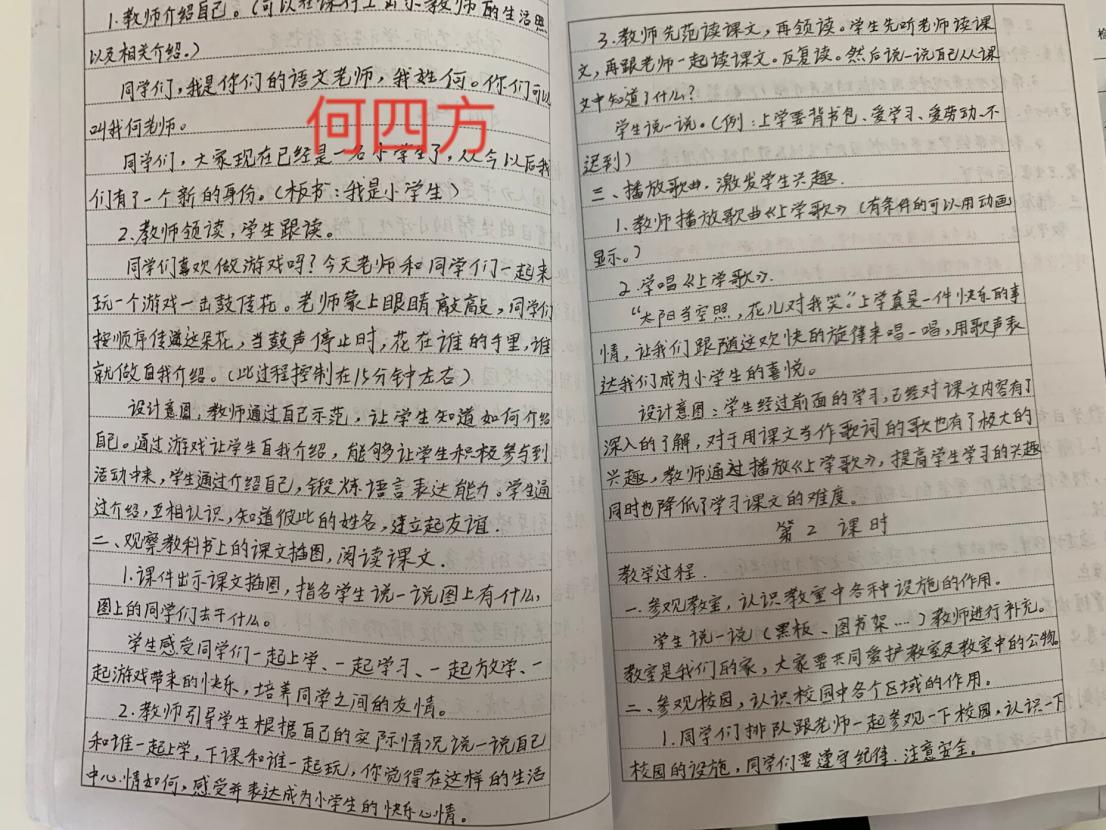 1.教师介绍自己。(可以在课件上出示教师的生活照
以及相关介绍。)
同学们,我是你们的语文老师,我姓何。你们可以
叫我何老师。
何四方
同学们,大家现在已经是一名小学生了,从今以后我
们有了一个新的身份。(板书:我是小学生)
2.教师领读,学生跟读。
同学们喜欢做游戏吗?今天老师和同学们一起来
玩一个游戏—击鼓传花。老师蒙上眼睛敲鼓,同学们
按顺序传递这朵花,当鼓声停止时,花在谁的手里,谁
就做自我介绍。(此过程控制在15分钟左右)
设计意图:教师通过自己示范,让学生知道如何介绍
自己。通过游戏让学生自我介绍,能够让学生积极参与到
活动中来,学生通过介绍自己,锻炼语言表达能力。学生通
过介绍,互相认识,知道彼此的姓名,建立起友谊.
二、观察教科书上的课文插图,阅读课文.
1.课件出示课文插图,指名学生说一说图上有什么,
图上的同学们去干什么。
学生感受同学们一起上学、一起学习、一起放学、一
起游戏带来的快乐,培养同学之间的友情。
2.教师引导学生根据自己的实际情况说一说自己
和谁一起上学,下课和谁一起玩,你觉得在这样的生活
中心情如何,感受并表达成为小学生的快乐心情。
3.教师先范读课文,再领读。学生先听老师读课
文,再跟老师一起读课文。反复读。然后说一说自己从课
文中知道了什么?
学生说一说。(例:上学要背书包、爱学习、爱劳动、不
迟到)
三、播放歌曲,激发学生兴趣.
1.教师播放歌曲《上学歌》(有条件的可以用动画
显示。)
2.学唱《上学歌》.
“太阳当空照,花儿对我笑。”上学真是一件快乐的事
情,让我们跟随这欢快的旋律来唱一唱,用歌声表
达我们成为小学生的喜悦。
设计意图:学生经过前面的学习,已经对课文内容有了
深入的了解,对于用课文当作歌词的歌也有了极大的
兴趣,教师通过播放《上学歌》,提高学生学习的兴趣
同时也降低了学习课文的难度。
第2课时
教学过程.
一.参观教室,认识教室中各种设施的作用。
学生说一说(黑板、图书架....)教师进行补充。
教室是我们的家,大家要共同爱护教室及教室中的公物。
二、参观校园,认识校园中各个区域的作用。
1.同学们排队跟老师一起参观一下校园,认识一下
校园的设施,同学们要遵守纪律.注意安全.